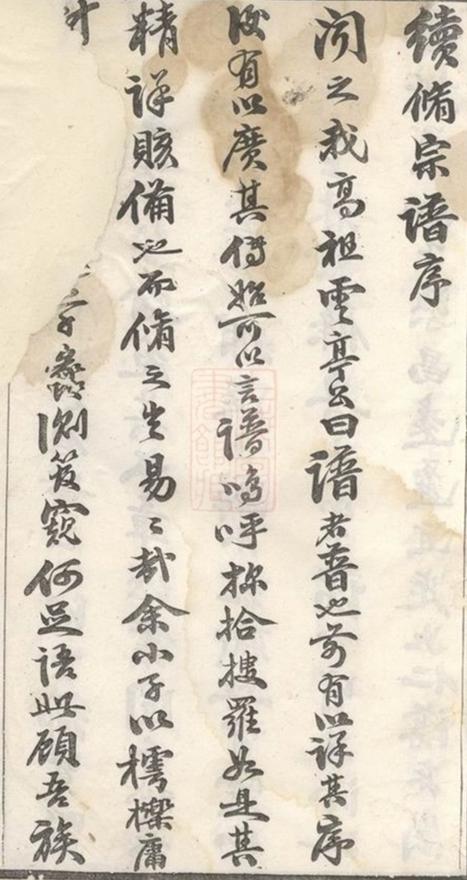 續脩宗譜序
聞之我高祖雲亭公曰譜者普也前有以詳其序
後有以廣其傳始可以言譜嗚呼採拾搜羅如且其
精詳賅備也而脩之豈易之哉余小子以樗櫟庸
才蠡測管窺何足語此顧吾族